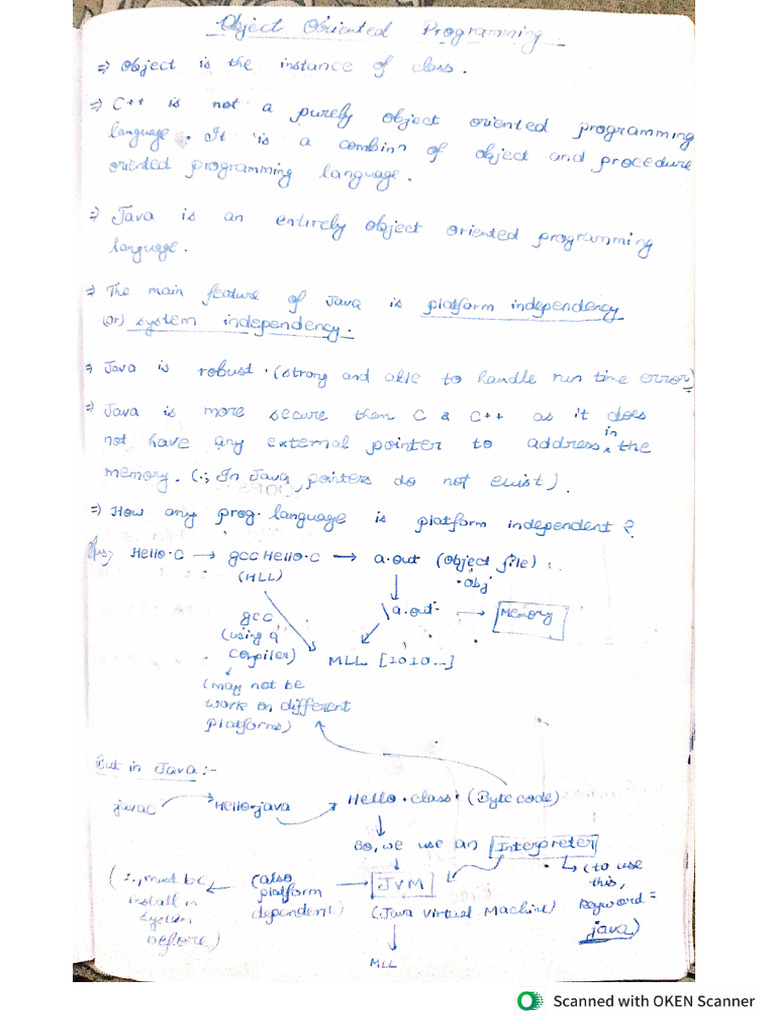 Object Oriented Programming
⇒ Object is the instance of class.
⇒ C++ is not a purely object oriented programming
language. It is a combinⁿ of object and procedure
oriented programming language.
⇒ Java is an entirely object oriented programming
language.
⇒ The main feature of Java is platform independency
(or) system independency.
⇒ Java is robust. (strong and able to handle run time error)
⇒ Java is more secure them C & C++ as it does
not have any external pointer to address in the
memory. (∵ In Java, pointers do not exist).
⇒ How any prog. language is platform independent?
Hello.C → gcc Hello.C → a.out (Object file)
(HLL) .obj
\a.out → Memory
gcc
(using a
compiler)
MLL [1010...]
(may not be
work on different
platforms)
But in Java:-
javac Hello.java Hello.class (Byte code)
So, we use an Interpreter
(∴, must be
install in
system,
before)
(also
platform
dependent)
JVM
(Java Virtual Machine)
(to use
this,
keyword =
java)
MLL
Scanned with OKEN Scanner